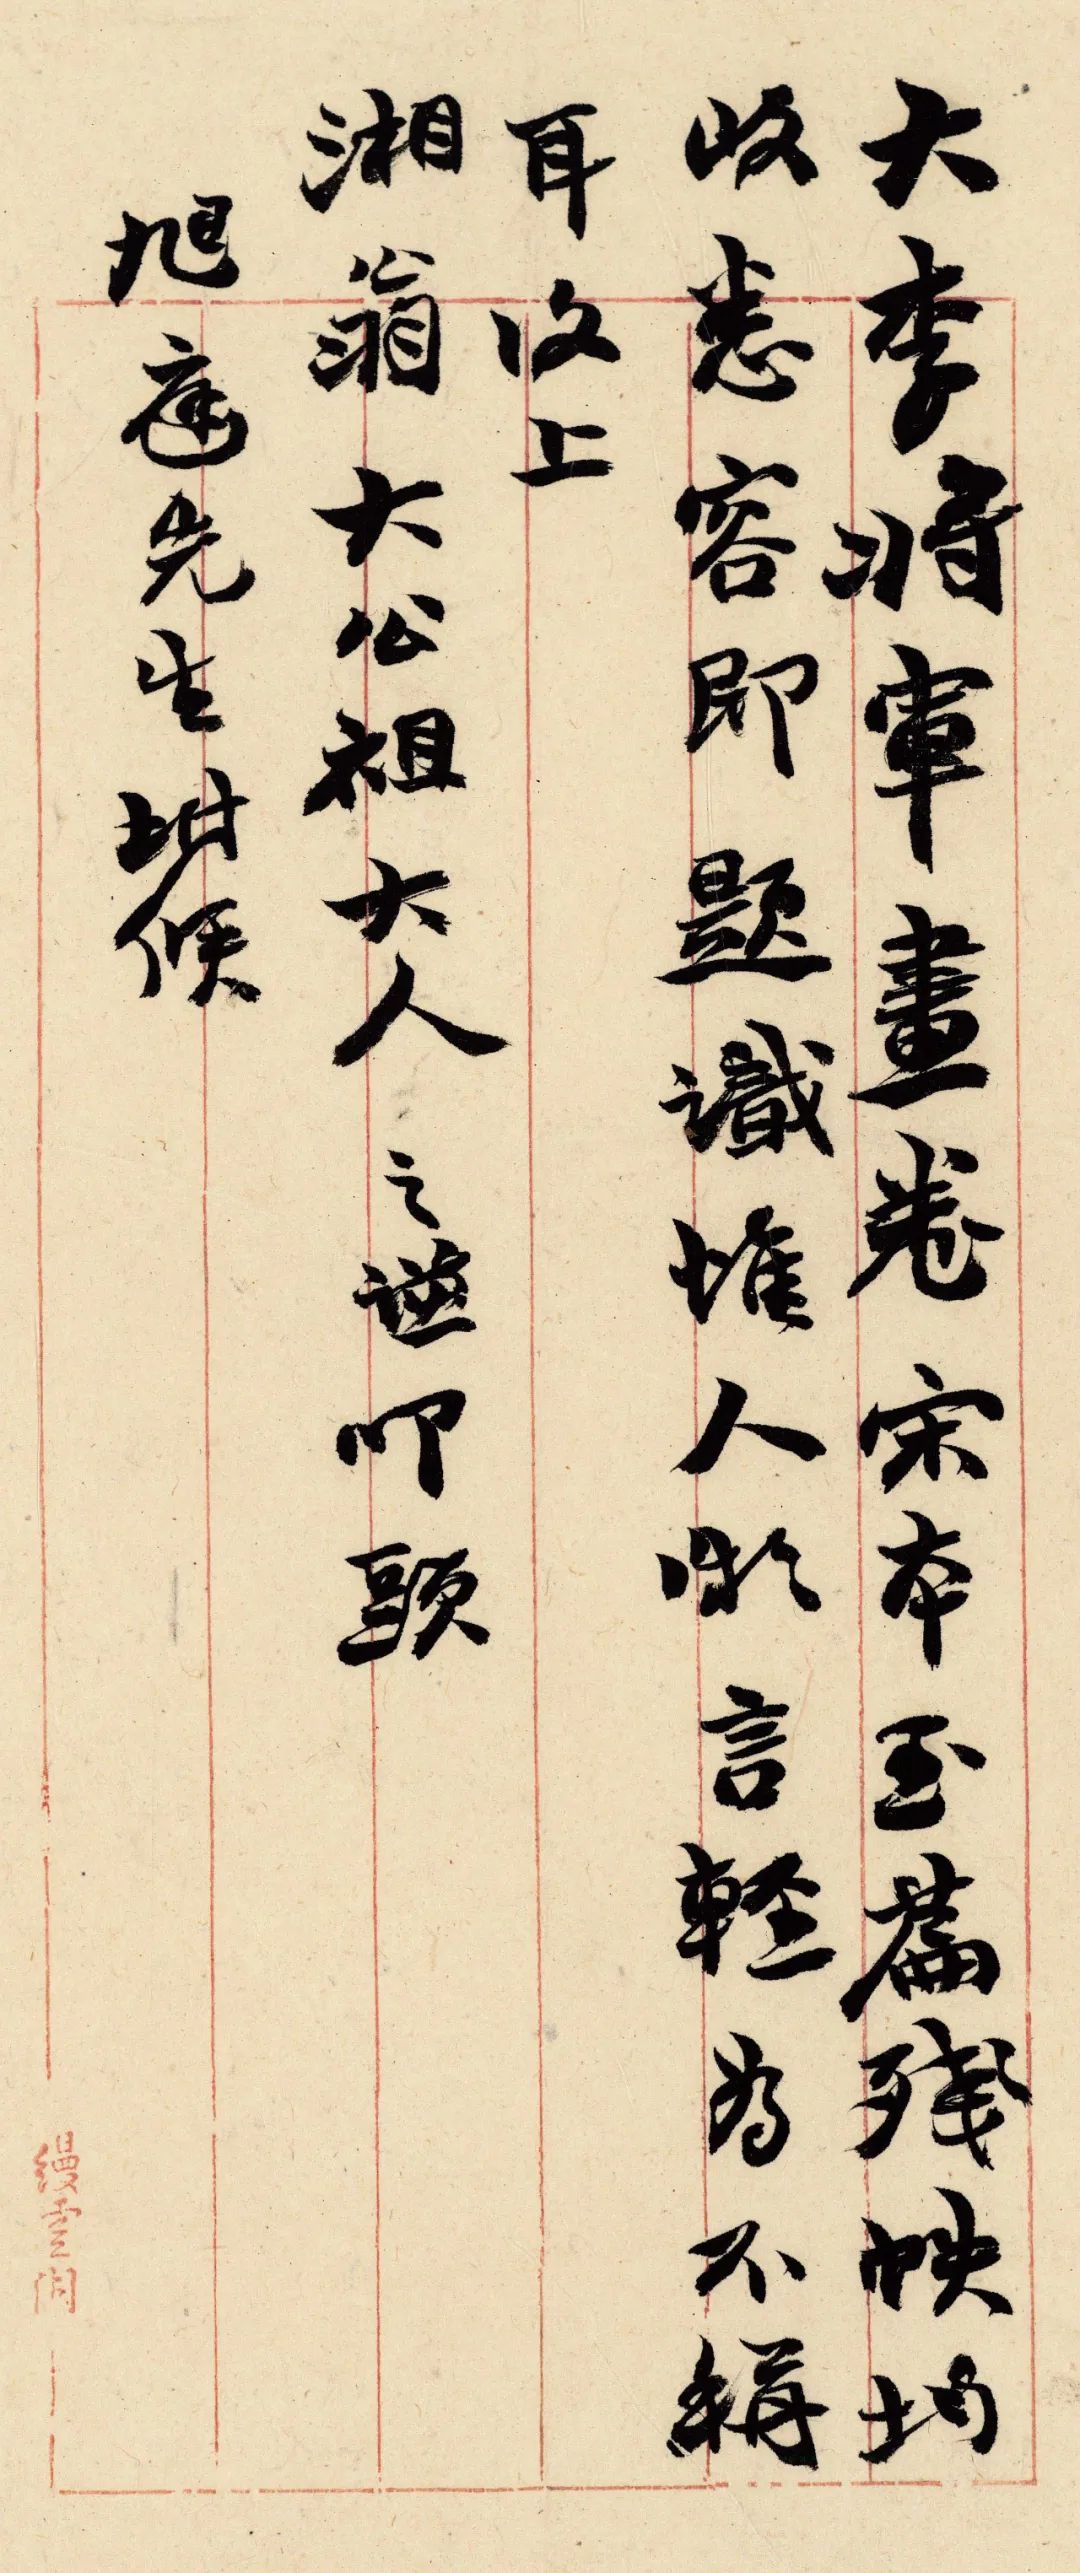 大李將軍畫卷宋本玉篇殘帙均
收悉容即題識惟人微言輕為不稱
耳復上
湘翁大公祖大人之謙叩頭
旭庭先生坿候
縵雲閣